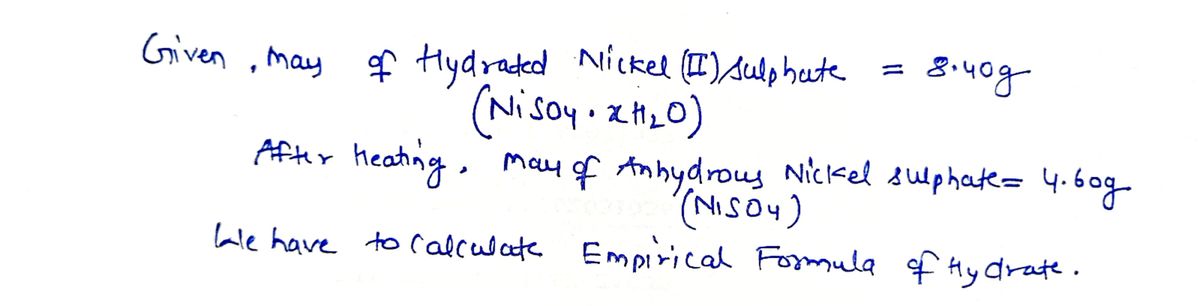 Given, mass of Hydrated Nickel (II) sulphate = 8.40g
(NiSO4 · xH2O)
After heating, mass of Anhydrous Nickel sulphate = 4.60g
(NiSO4)
We have to calculate Empirical Formula of Hydrate.